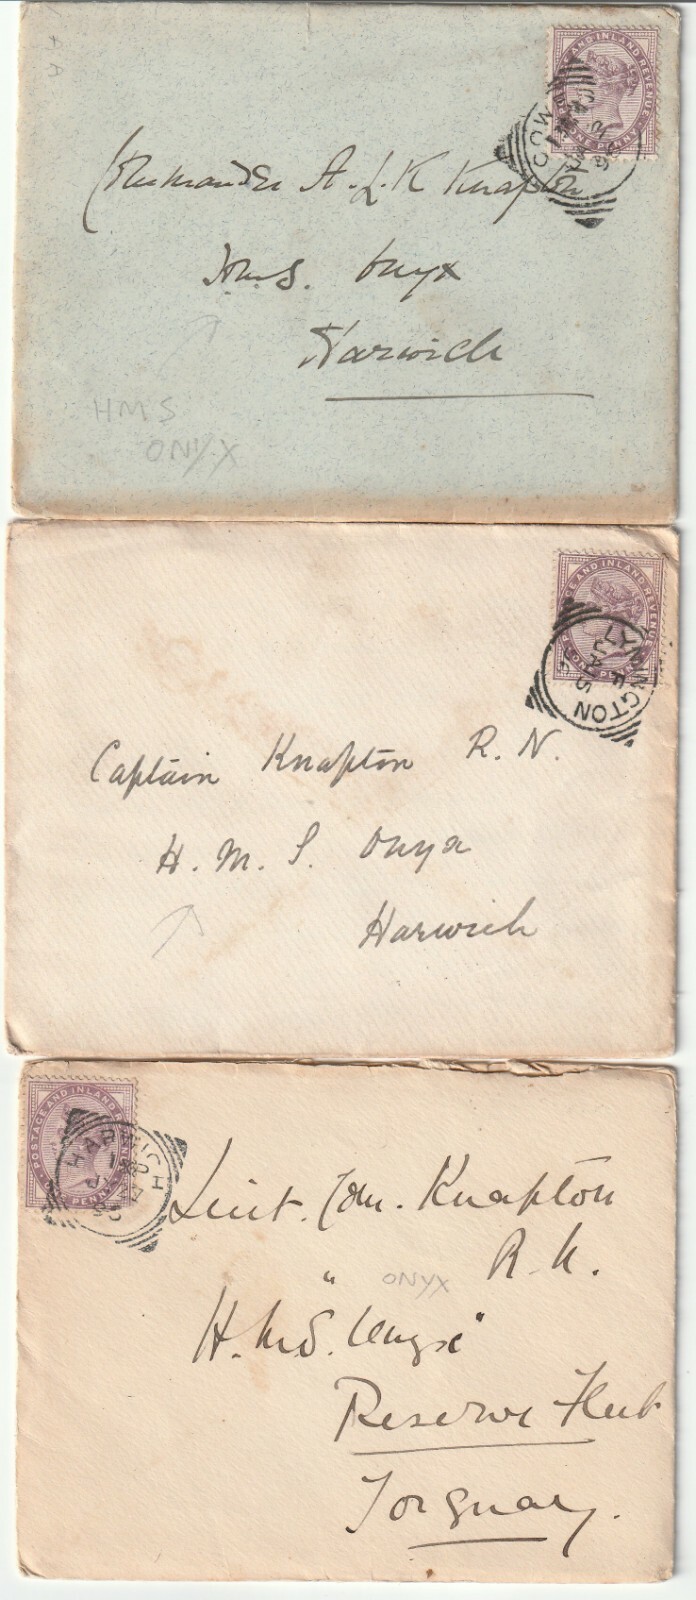 POSTAGE AND INLAND REVENUE
ONE PENNY
Commander A. L. K Knapton
H.M.S. Onyx
Harwich
HMS
ONYX
POSTAGE AND INLAND REVENUE
ONE PENNY
LYMINGTON
F
JA 5
Captain Knapton R. N.
H. M. S. Onyx
Harwich
POSTAGE AND INLAND REVENUE
ONE PENNY
HARWICH
Lieut. Com. Knapton
R. N.
ONYX
H.M.S. "Onyx"
Reserve Fleet
Torquay.